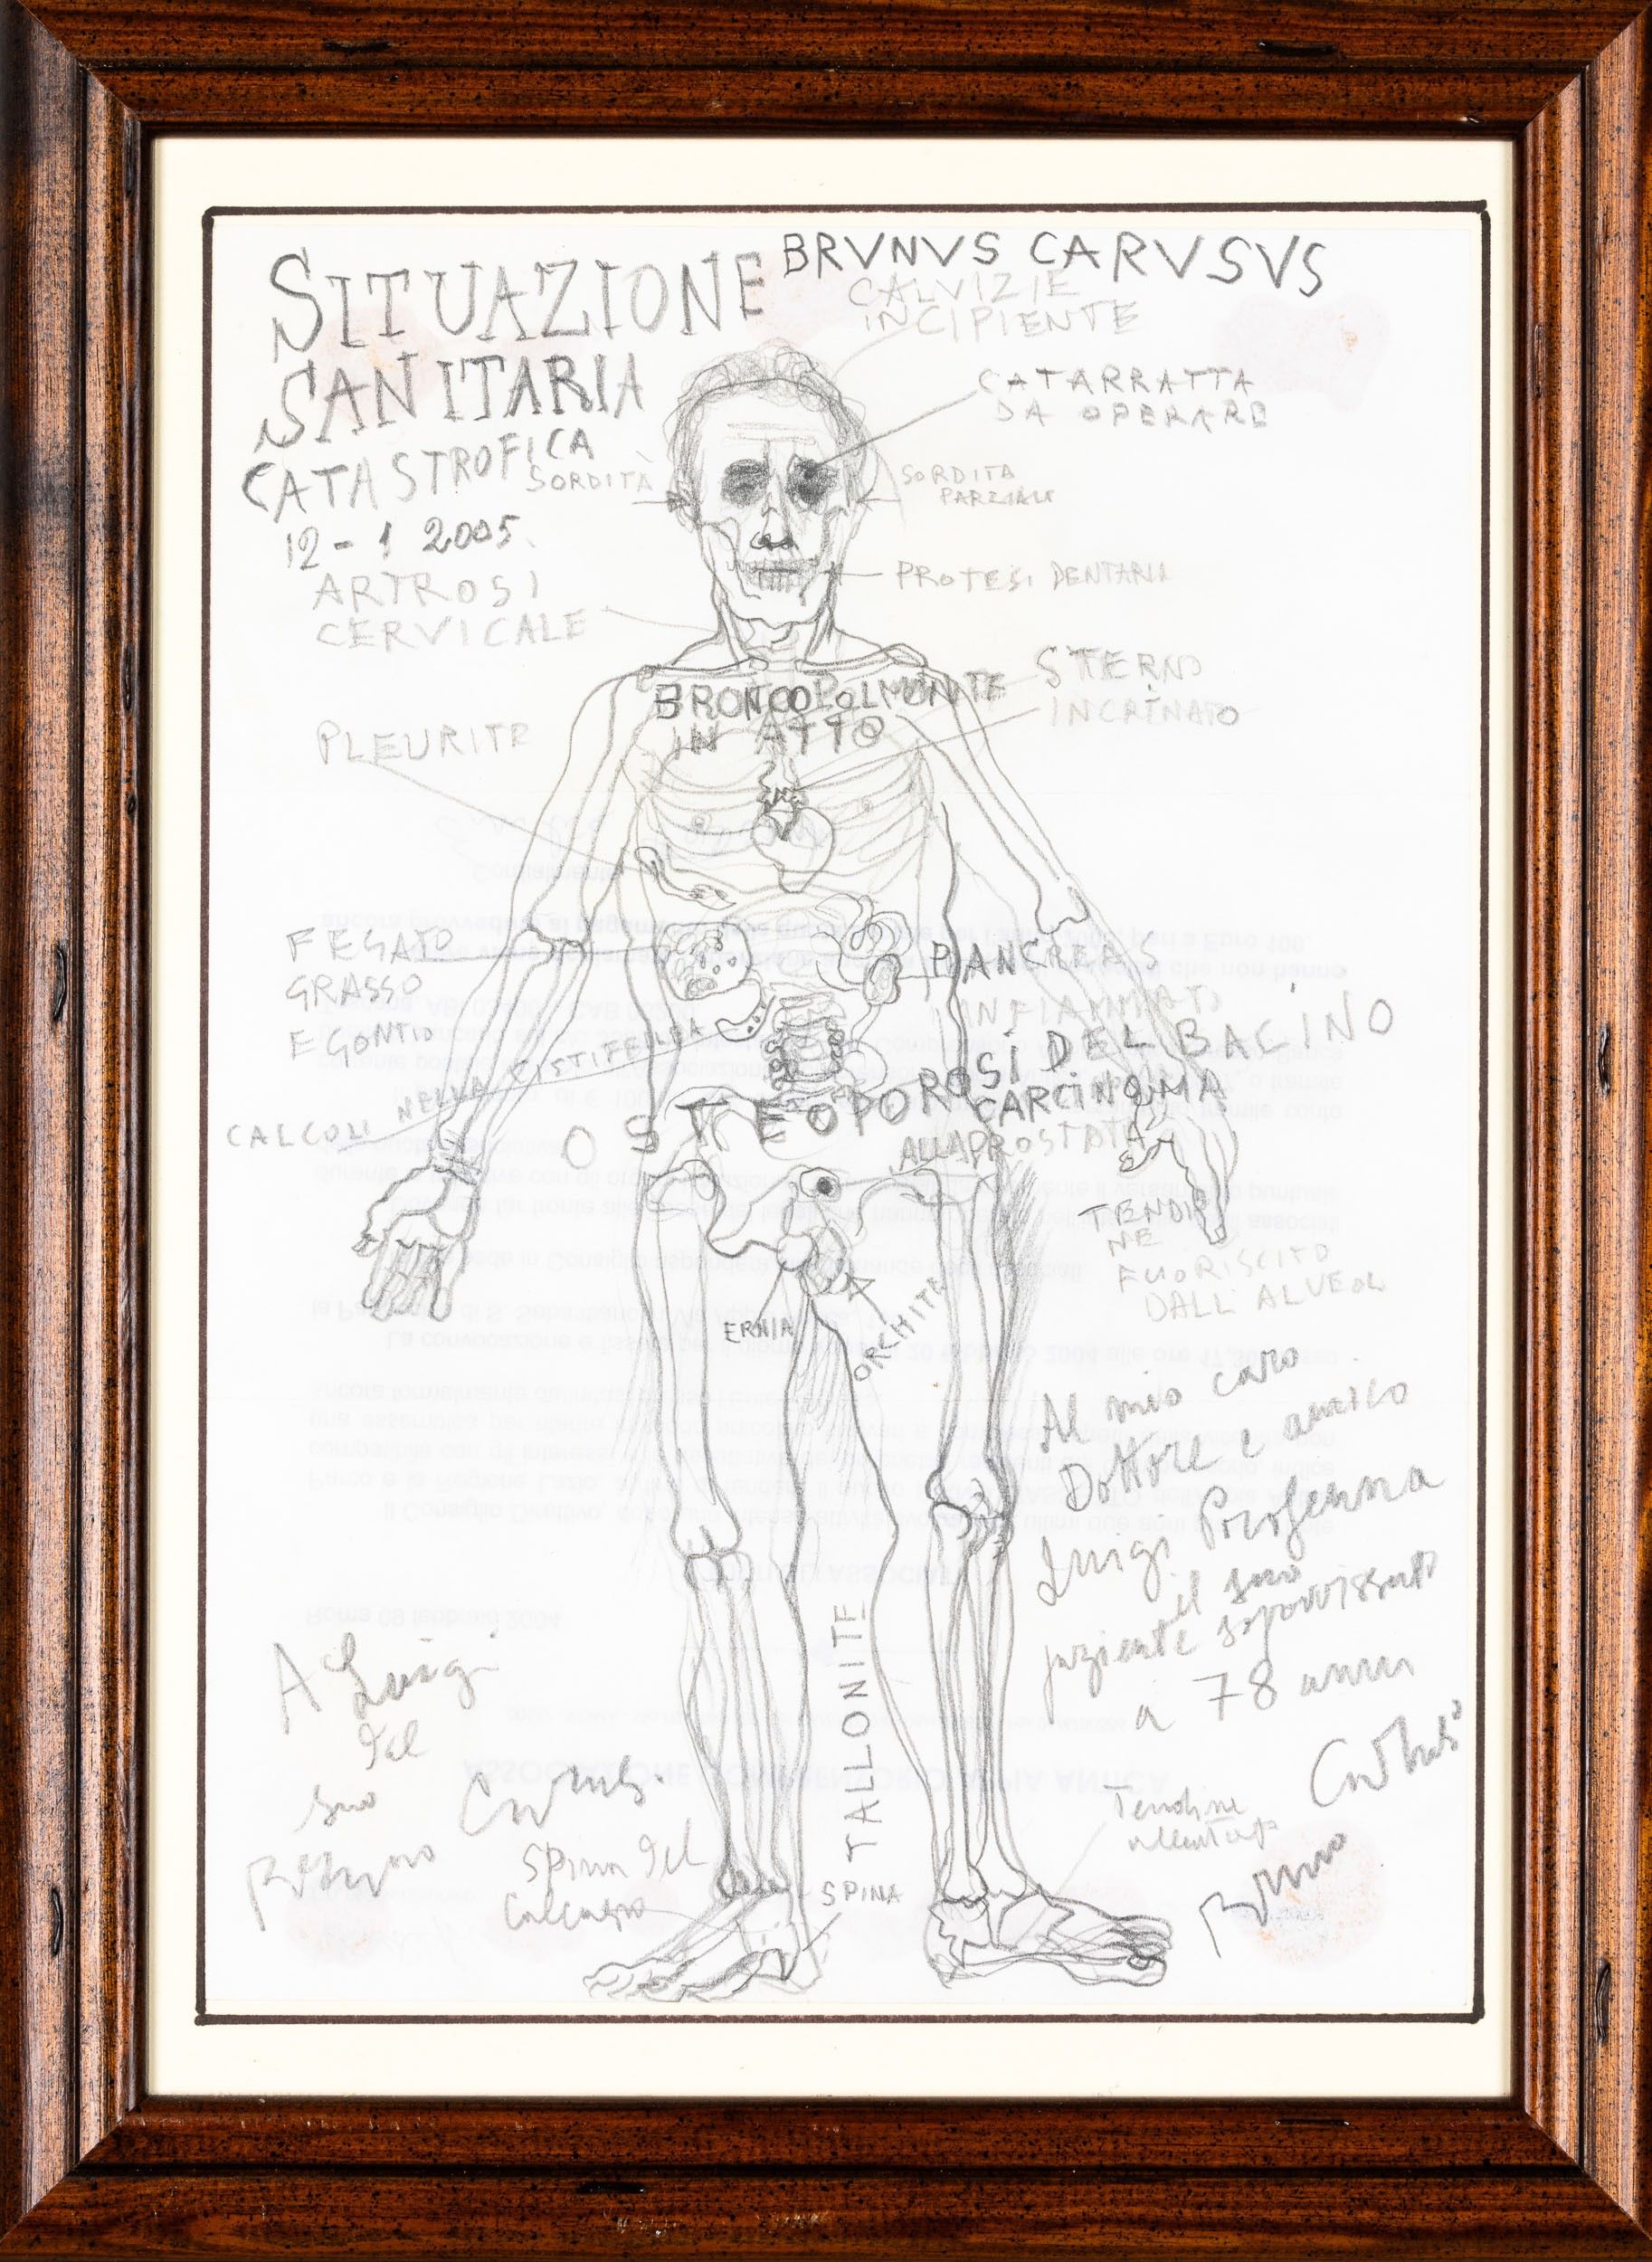 SITUAZIONE
SANITARIA
CATASTROFICA
12-1 2005.
BRVNVS CARVSVS
CALVIZIE
INCIPIENTE
CATARRATTA
DA OPERARE
SORDITÀ
SORDITA
PARZIALE
PROTESI DENTARIA
ARTROSI
CERVICALE
BRONCOPOLMONITE
IN ATTO
STERNO
INCRINATO
PLEURITE
FEGATO
GRASSO
E GONFIO
PANCREAS
INFIAMMATO
CALCOLI NELLA CISTIFELLEA
OSTEOPOROSI DEL BACINO
CARCINOMA
ALLA PROSTATA
TENDI
NE
FUORISCITO
DALL'ALVEOL
ERNIA
ORCHITE
Al mio caro
Dottore e amico
Luigi
il suo
paziente
a 78 anni
Bruno
A Luigi
del
suo
Bruno
TALLONITE
Spina del
SPINA
Tendine